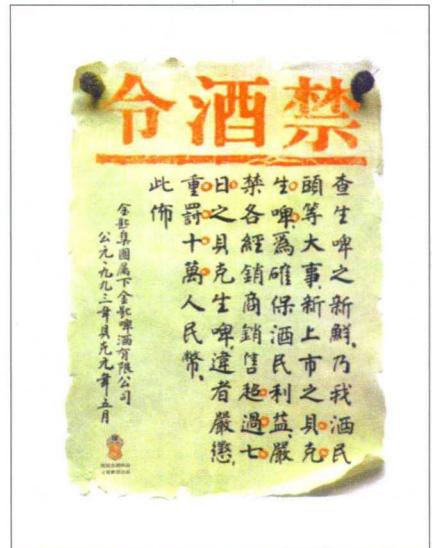 禁酒令
查生啤之新鮮，乃我酒民
頭等大事，新上市之貝克
生啤，爲確保酒民利益，嚴
禁各經銷商銷售超過七
日之貝克生啤，違者嚴懲，
重罰十萬人民幣，
此佈
金匙集團属下金匙啤酒有限公司
公元一九九三年貝克元年五月